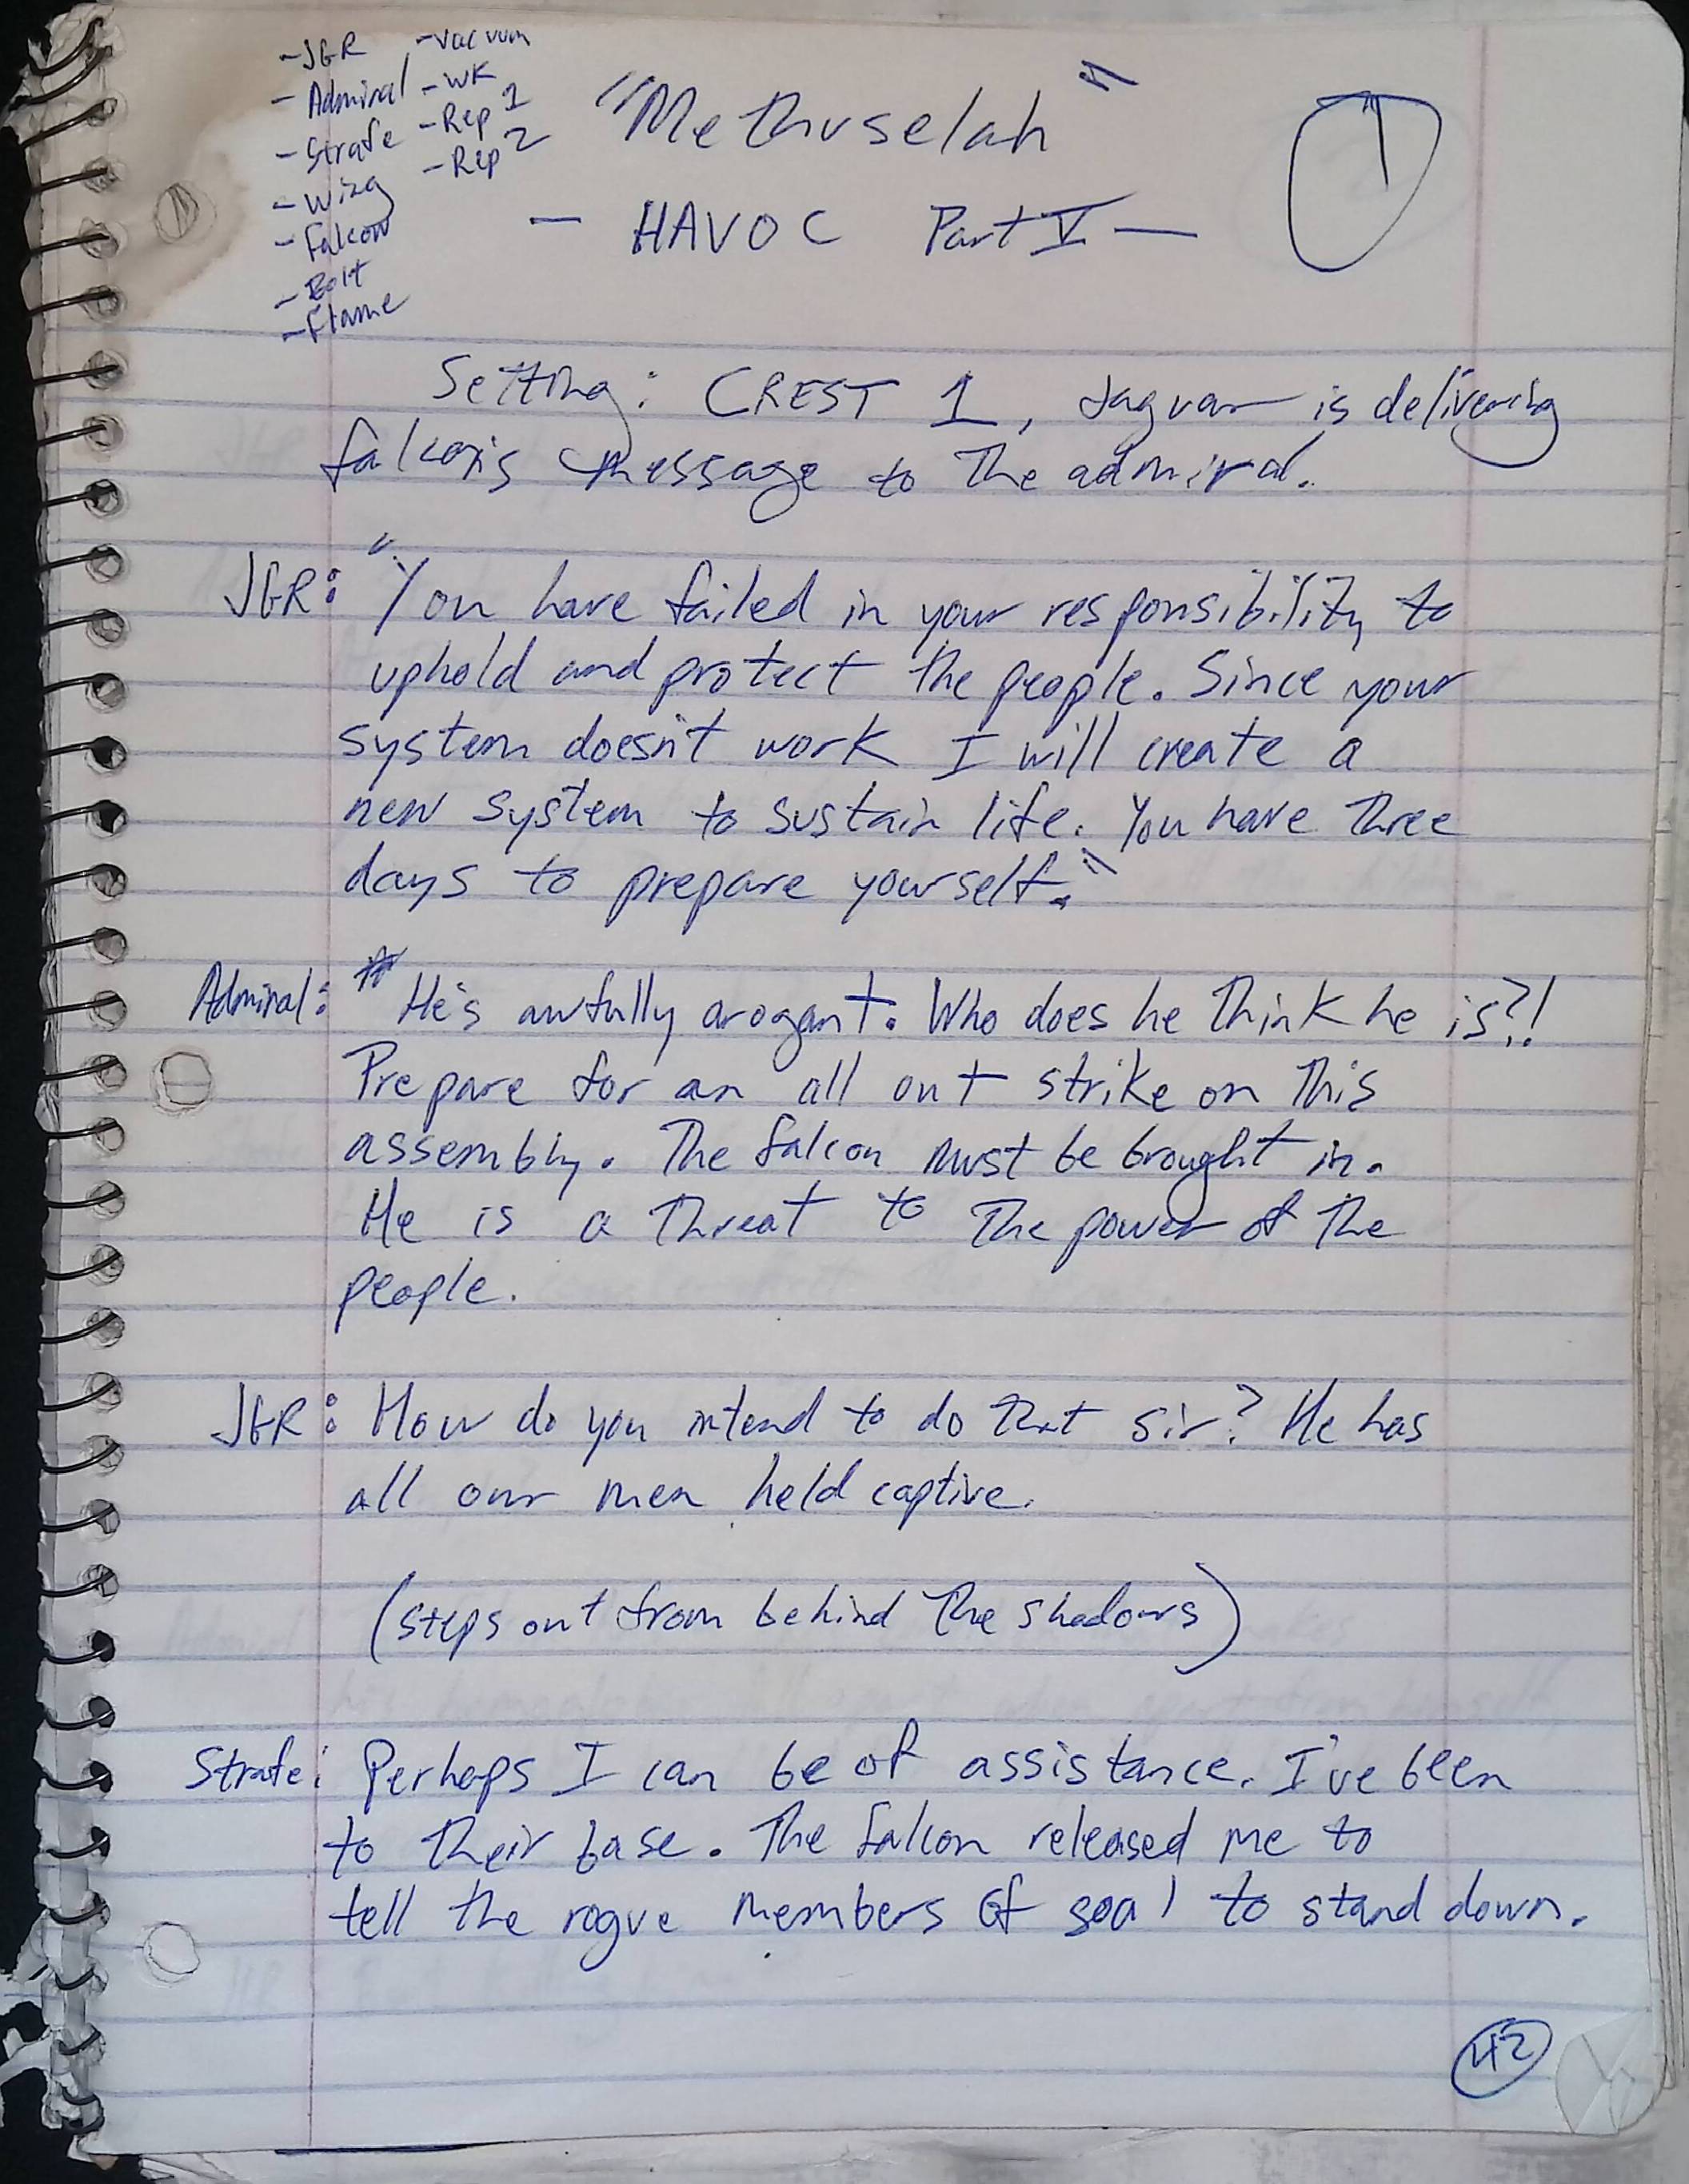 - JGR
- Admiral
- Strafe
- Wing
- Falcon
- Bolt
- Flame
- Vacuum
- WK
- Rep 1
- Rep 2
"Methuselah"
- HAVOC Part V -
1
Setting: CREST 1, Jaguar is delivering
falcon's message to the admiral.
JGR: "You have failed in your responsibility to
uphold and protect the people. Since your
system doesn't work I will create a
new system to sustain life. You have three
days to prepare yourself."
Admiral: He's awfully arogant. Who does he think he is?!
Prepare for an all out strike on this
assembly. The falcon must be brought in.
He is a threat to the power of the
people.
JGR: How do you intend to do that sir? He has
all our men held captive.
(steps out from behind the shadows)
Strafe: Perhaps I can be of assistance. I've been
to their base. The falcon released me to
tell the rogue members of seal to stand down.
42